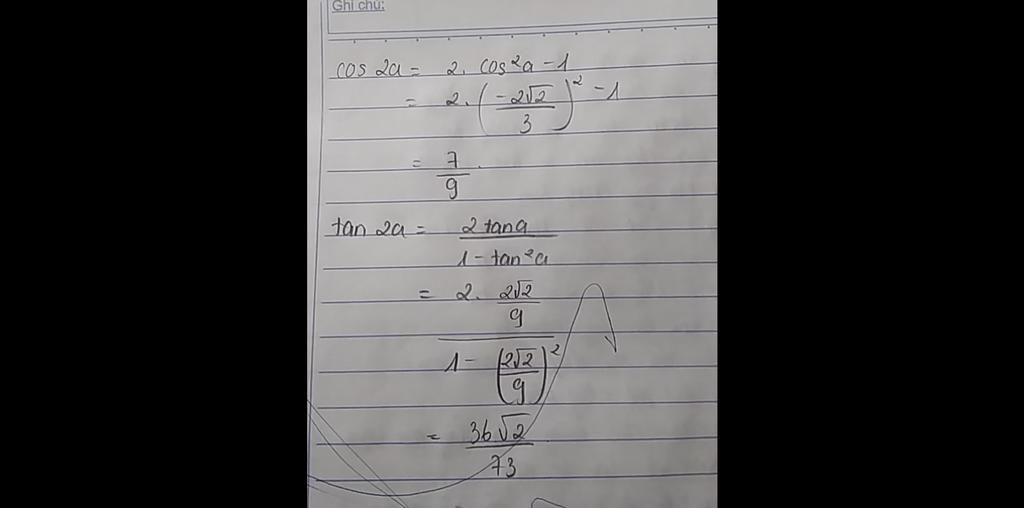 Ghi chú:
cos 2a = 2. cos²a - 1
= 2. (-2√2/3)² - 1
= 7/9.
tan 2a = 2 tana / 1 - tan²a
= 2. 2√2/9 / 1 - (2√2/9)²
= 36√2 / 73